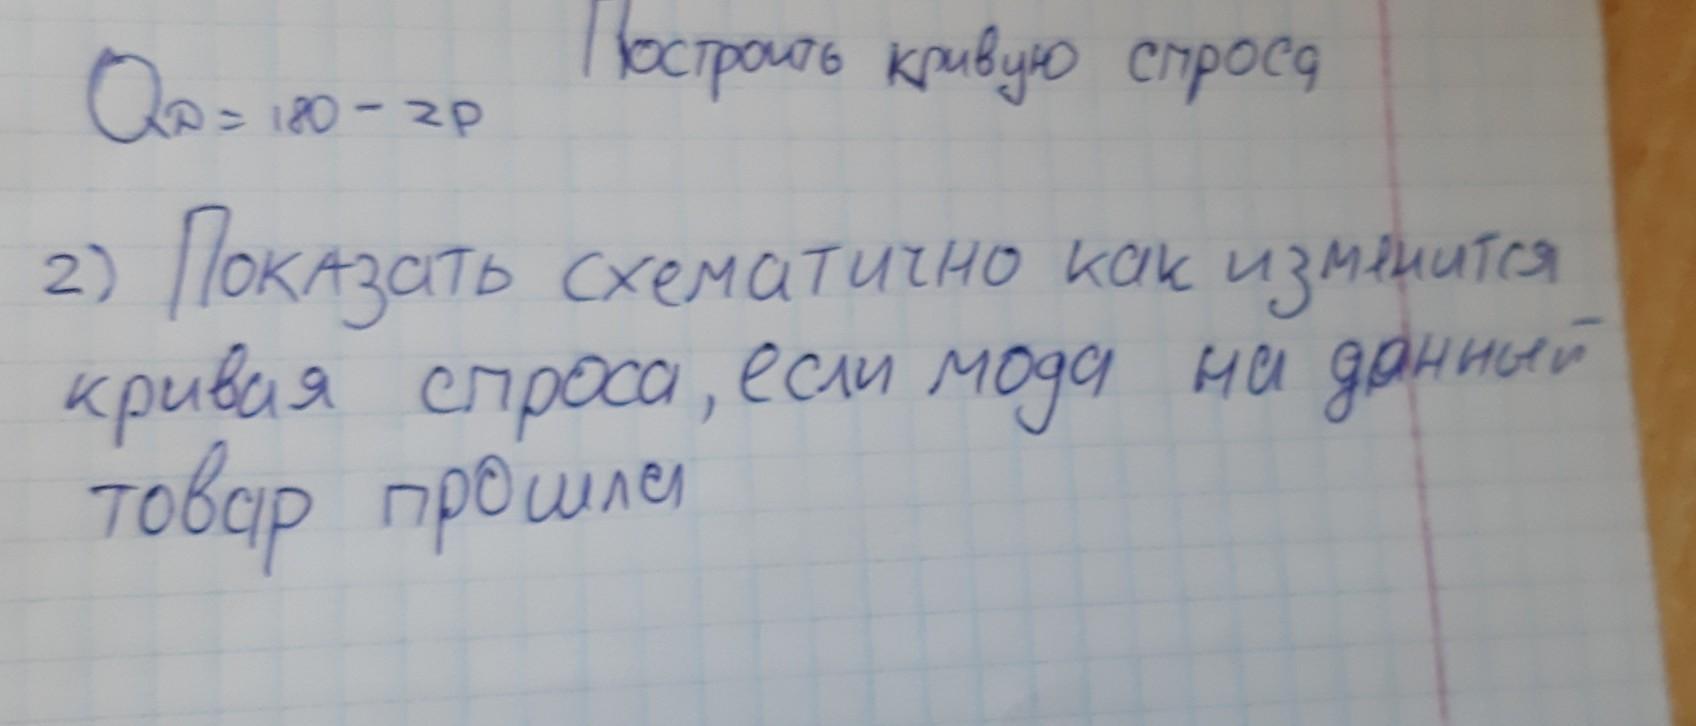 Построить кривую спроса
QD = 180 - 2P
2) Показать схематично как изменится
кривая спроса, если мода на данный
товар прошла